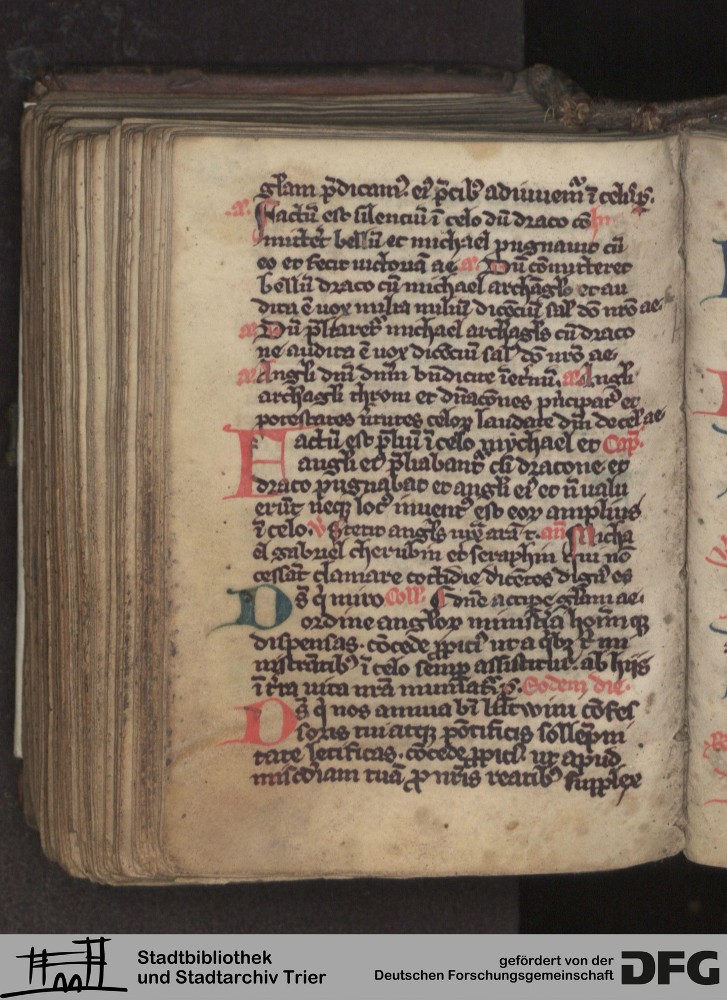 glam p̄dicam᷒. ei᷒ p̄cib᷒ adiuuem̄ ī celis p̄.
a. Factū est silenciū ī celo dū draco cō
mitter bellū et michael pugnauit cū
eo et fecit uictoriā ae a. Dū cōmitteret
bellū draco cū michael archāgl̄o et au
dita ē uox milia miliū dicēciū sal᷒ dō nr̄o ae
a. Dū p̄liaret᷒ michael archagl̄s cū draco
ne audita ē uox dicēciū sal᷒ dō nr̄o ae.
a. Angli dn̄i dn̄m bn̄dicite ī et̄nū. a. Angli
archagl̄i throni et dn̄acōnes p̄ncipat᷒ et
potestates ūtutes celoꝝ laudate dn̄m de cel᷒ ae
Factū est p̄liū ī celo mychael et Cap̄.
angli ei᷒ p̄liabant᷒ cū dracone et
draco pugnabat et angli ei᷒ et n̄ ualu
erūt neqꝫ loc᷒ inuent᷒ est eoꝝ amplius
ī celo. v̄ Stetit angl̄s iux̄ arā t. an̄ Micha
el gabriel cherubin et seraphin qui nō
cessāt clamare cottidie dicētes dign᷒ es
dn̄e accipe glam ae.
Ds̄ q̄ miro Coll.
ordine angl̄oꝝ minist̄ia hom̄inqꝫ
dispensas. cōcede ꝓpici᷒ ut a qbꝫ t᷒ mi
nistrātib᷒ ī celo semp̄ assistitur. ab hijs
ī t̄ra uita nr̄a muniat᷒. p̄. Eodem die.
Ds̄ q̄ nos annua bt̄i lutwini cōfes
soris tui atqꝫ pōtificis sollēpni
tate letificas. cōcede ꝓpici᷒ ut apud
mis̄cdiam tuā ꝓ nr̄is reatib᷒ supplex
Stadtbibliothek
und Stadtarchiv Trier
gefördert von der
Deutschen Forschungsgemeinschaft
DFG